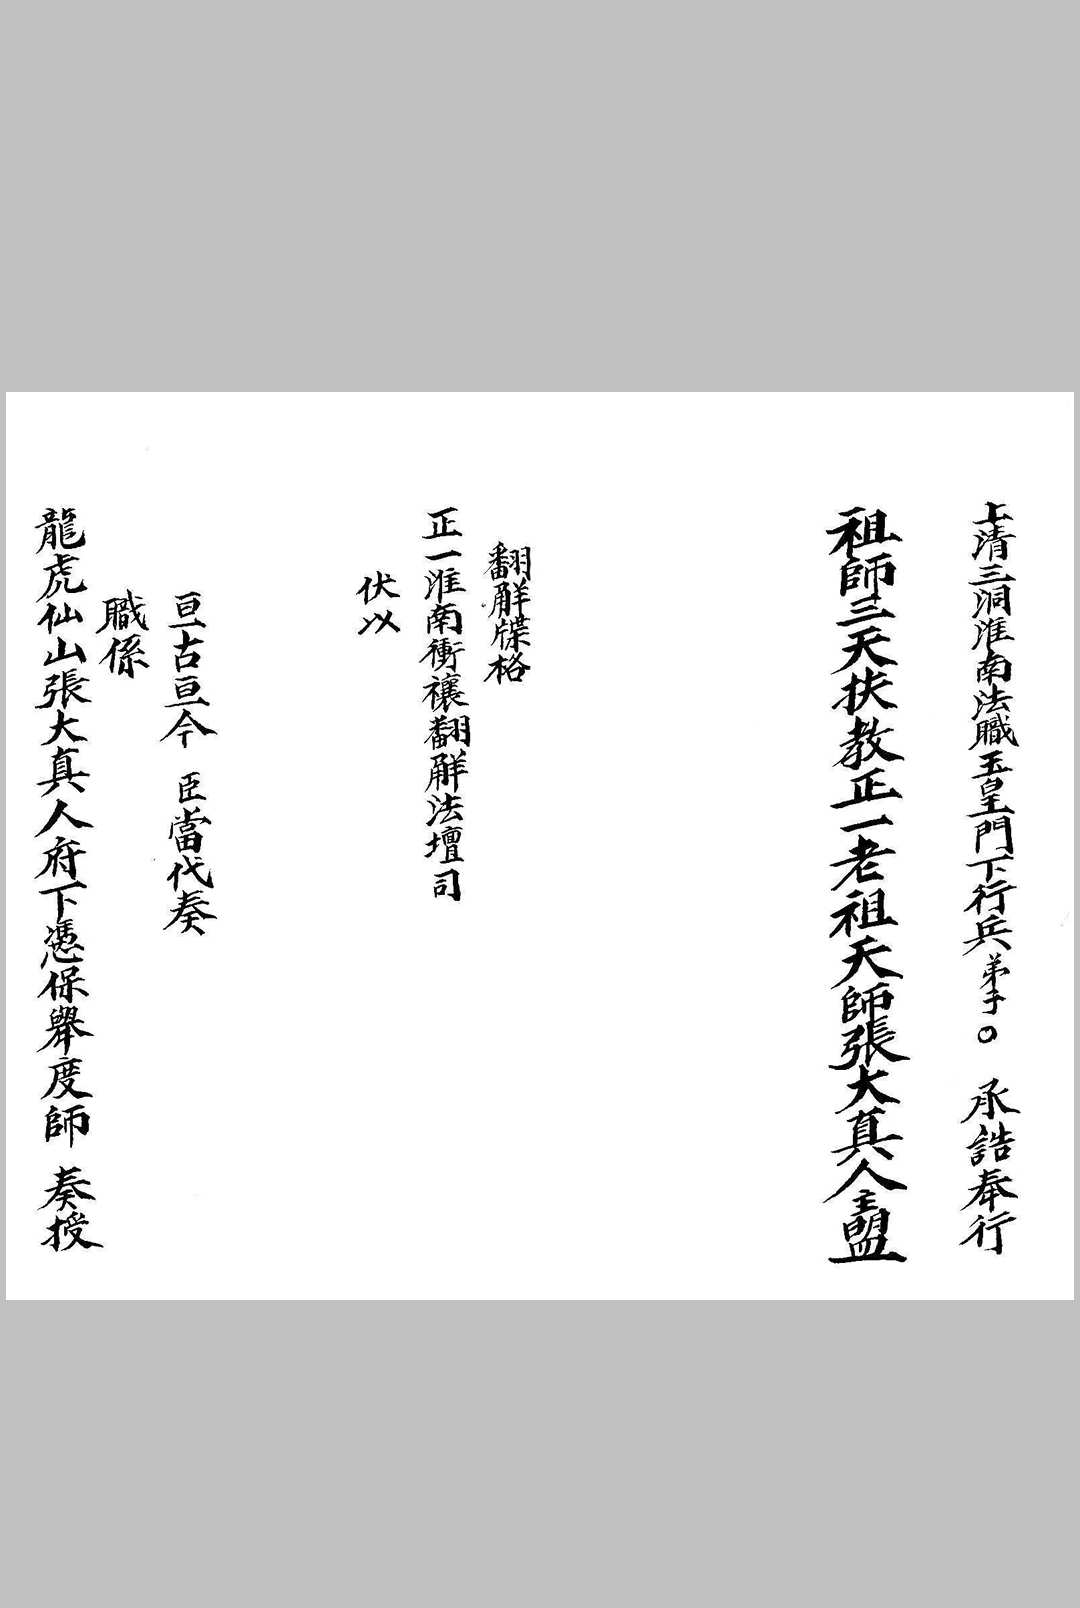 上清三洞淮南法職玉皇門下行兵弟子〇 承誥奉行
祖師三天扶教正一老祖天師張大真人主盟
翻解牒格
正一淮南衝禳翻解法壇司
伏以
亘古亘今 臣當代奏
職係
龍虎仙山張大真人府下憑保舉度師 奏授